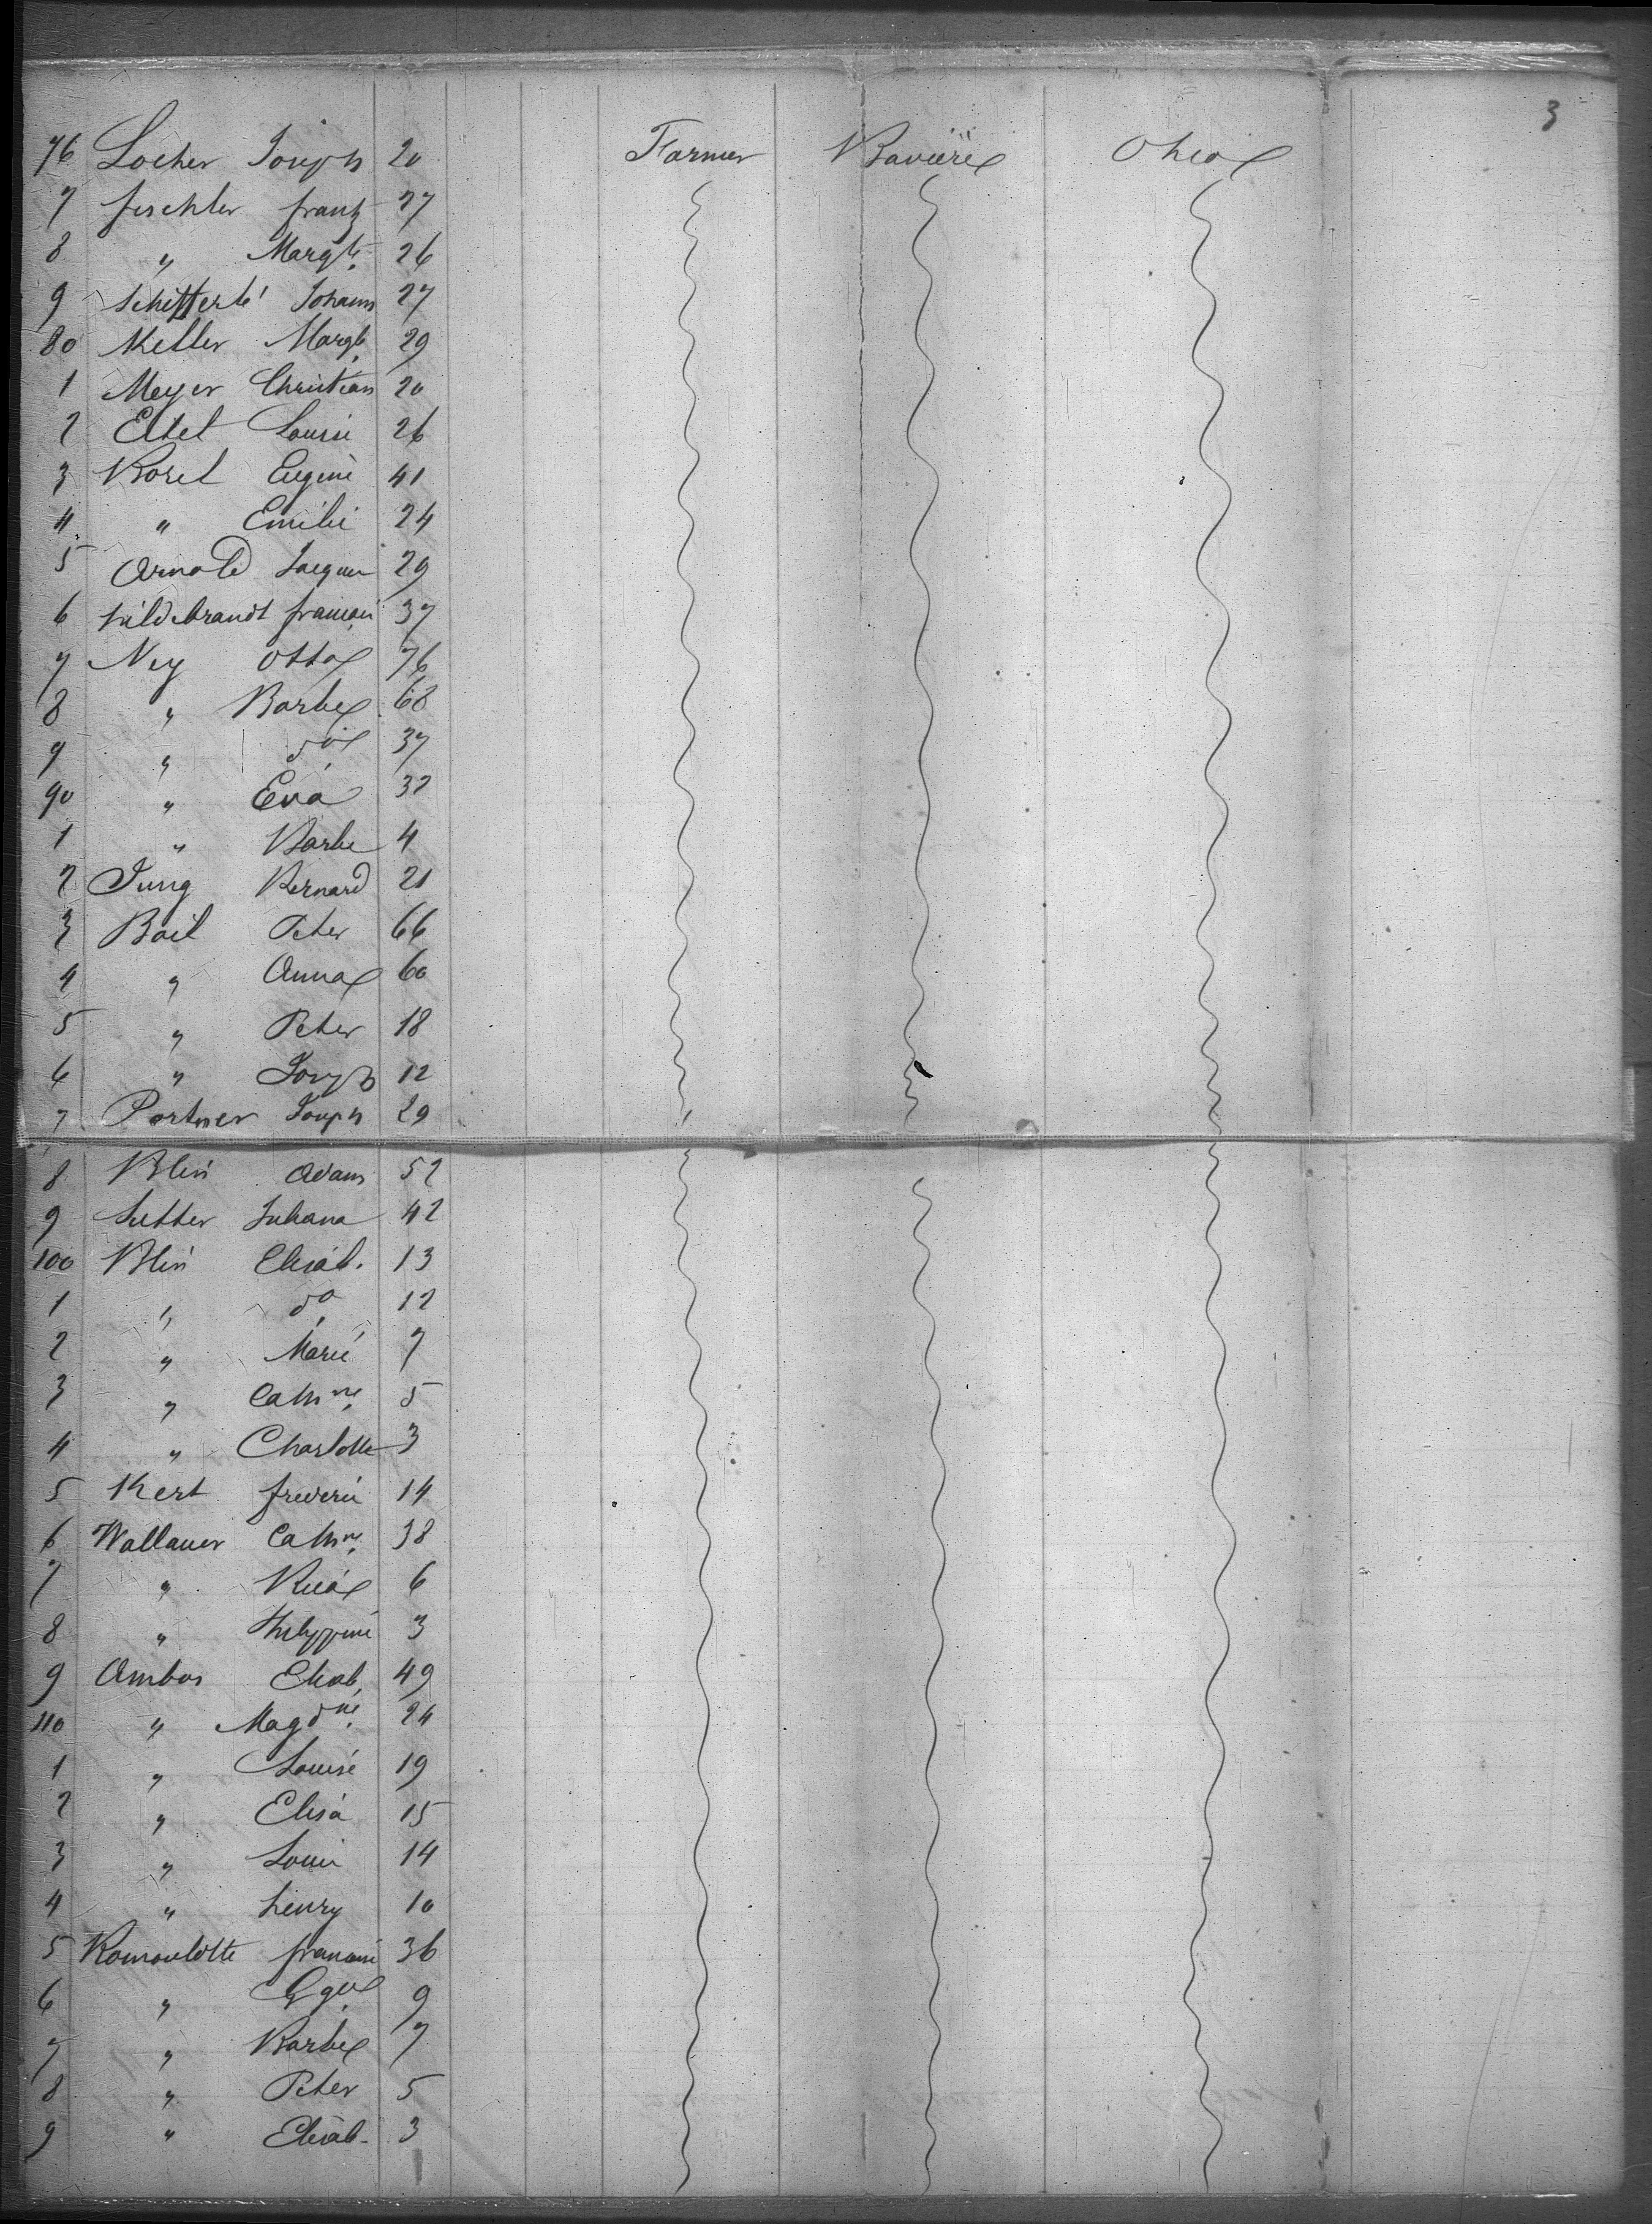 3
76 Locher Joseph 20 Farmer Bavière Ohio
7 fischler frantz 27
8 " Margte 26
9 Schifferlé Johann 27
80 Keller Margte 29
1 Meyer Christian 20
2 Ettel Louise 26
3 Borel Eugène 41
4 " Emilie 24
5 Arnold Jacques 29
6 hildebrandt françois 37
7 Ney Otto 76
8 " Barbe 68
9 " do 37
90 " Eva 32
1 " Barbe 4
2 Jung Bernard 21
3 Bail Peter 66
4 " Anna 60
5 " Peter 18
6 " Joseph 12
7 Portner Joseph 29
8 Blein Adam 52
9 Sutter Juliana 42
100 Blein Elisab. 13
1 " do 12
2 " Marie 7
3 " Cathne 5
4 " Charlotte 3
5 Kert frederic 14
6 Wallauer Cathne 38
7 " 6
8 " Philippine 3
9 Ambos Elisab. 49
110 " Magdne 24
1 " Louise 19
2 " Elisa 15
3 " Louis 14
4 " henry 10
5 Romoulotte 36
6 " 9
7 " Barbe 7
8 " Peter 5
9 " Elisab. 3